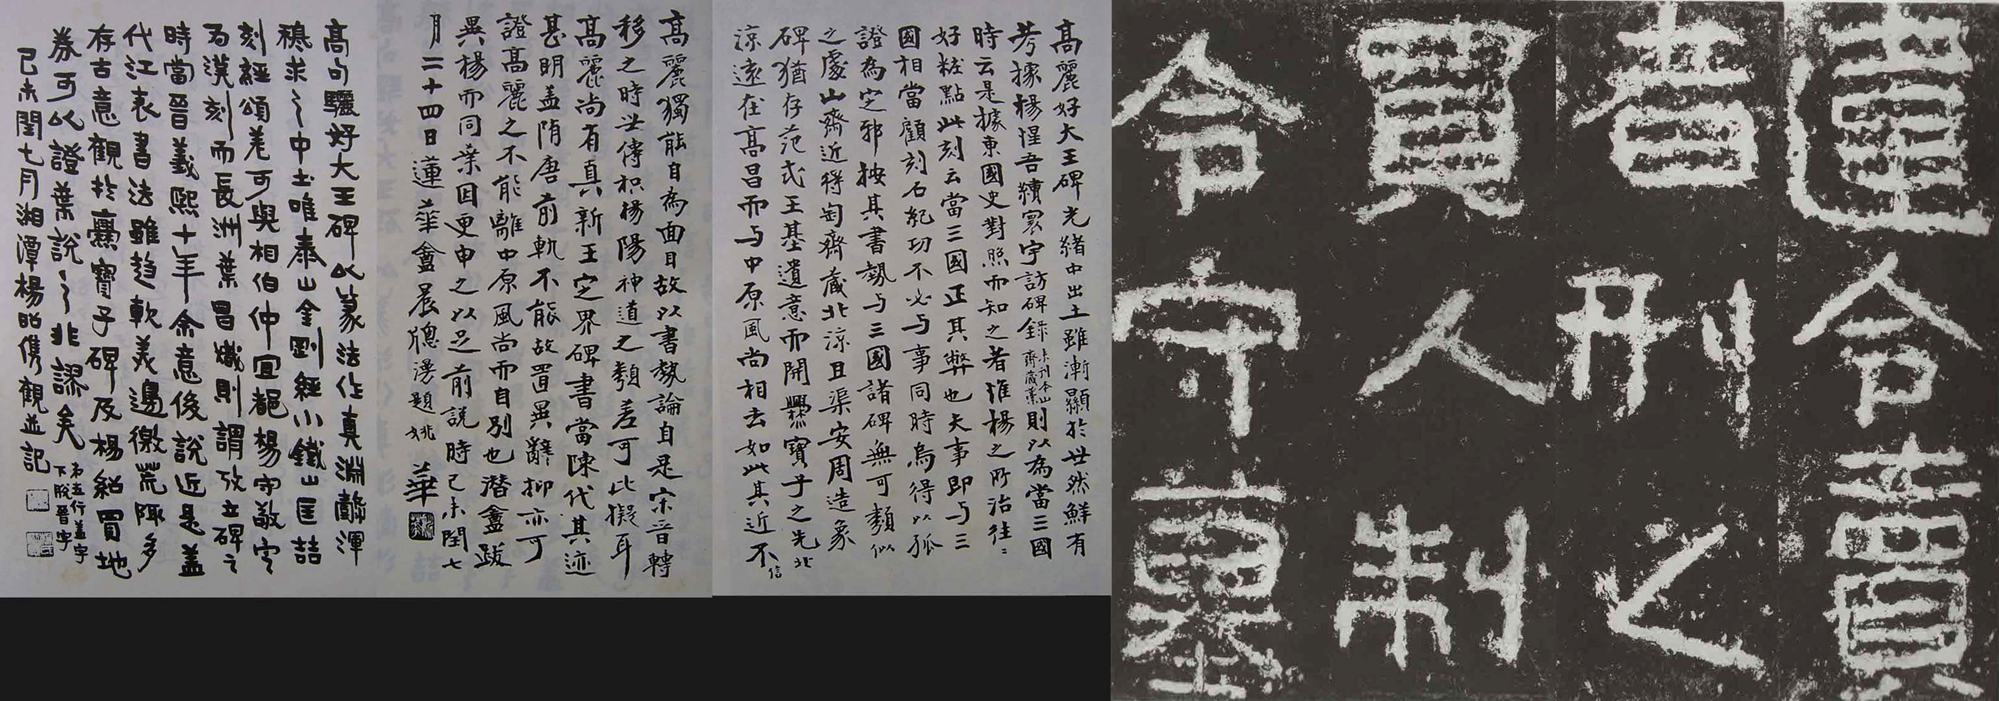 違令賣
者刑之
買人制
令守墓
高麗好大王碑光緒中出土雖漸顯於世然鮮有
考據楊惺吾續寰宇訪碑錄未刊本山齋藏稾則以為當三國
時云是據東國史對照而知之者惟楊之所治往〻
好粧點此刻云當三國正其弊也夫事即与三
國相當顧刻石紀功不必与事同時烏得以孤
證為定邪按其書勢与三國諸碑無可類似
之處山齋近得匋齋藏北涼且渠安周造象
碑猶存范式王基遺意而開爨寶子之先北
涼遠在高昌而与中原風尚相去如此其近不信
高麗獨能自為面目故以書勢論自是宋晉轉
移之時世傳枳楊陽神道之類差可比擬耳
高麗尚有真新王定界碑書當陳代其迹
甚明蓋隋唐前軌不能故置異辭抑亦可
證高麗之不能離中原風尚而自別也潛盦跋
異楊而同葉因更申之以足前說時己未閏七
月二十四日蓮華盦晨牕漫題姚華
高句驪好大王碑以篆法作真淵懿渾
穆求之中土唯泰山金剛經小鐵山匡喆
刻經頌差可與相伯仲宜都楊守敬定
為漢刻而長洲葉昌熾則謂攷立碑之
時當晉義熙十年余意後說近是蓋
代江表書法雖趋軟美邊徼荒陬多
存古意觀於爨寶子碑及楊紹買地
券可以證葉說之非謬矣弟五行蓋字下脫晉字
己未閏七月湘潭楊昭儁觀並記